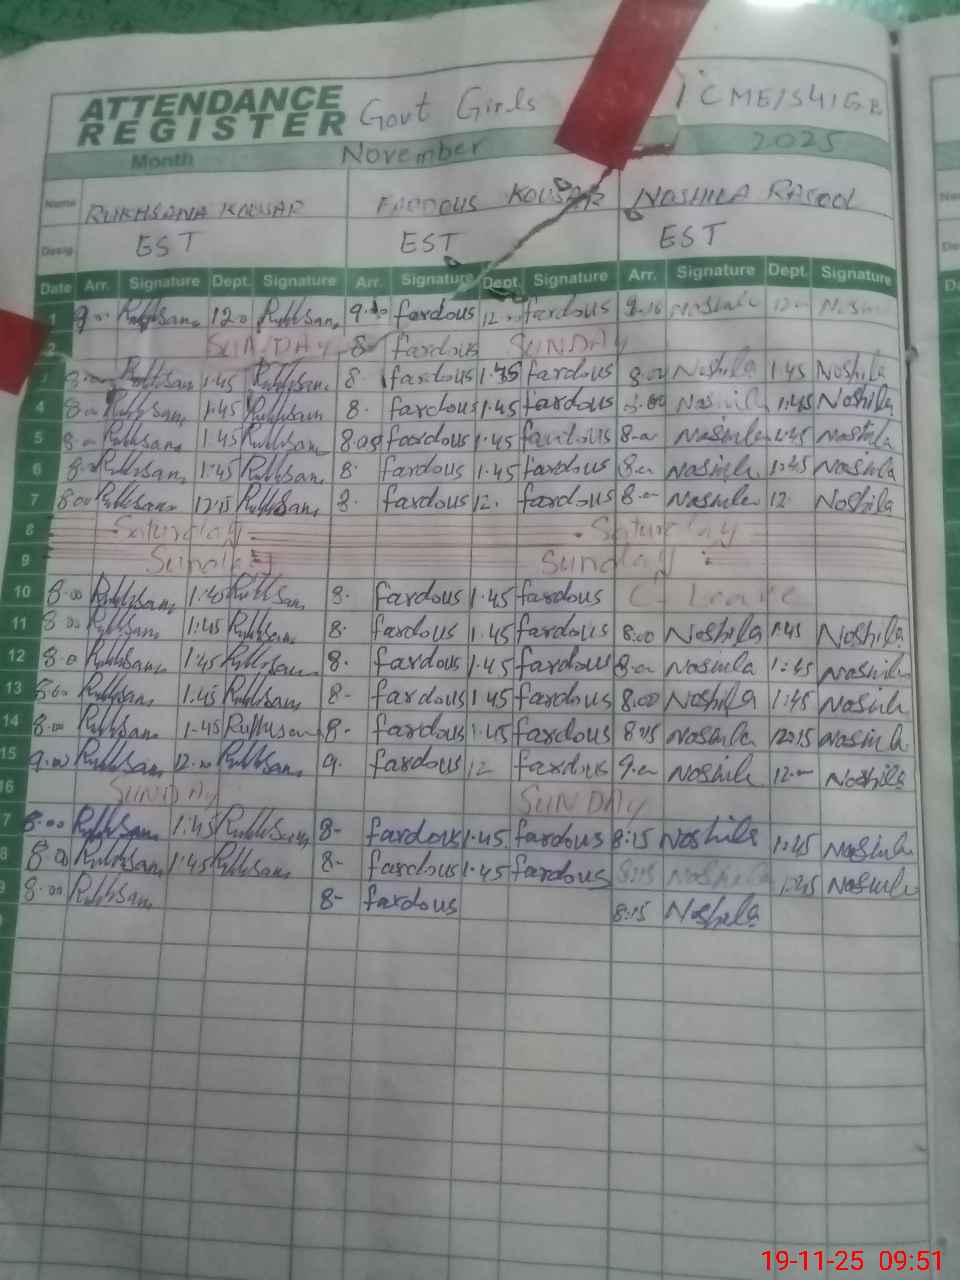 ATTENDANCE
REGISTER Govt Girls
Month November 2025
Name RUKHSANA KOUSAR FARDOUS KOUSAR NOSHILA RASOOL
Desig. EST EST EST
Date Arr. Signature Dept. Signature Arr. Signature Dept. Signature Arr. Signature Dept. Signature
1 9.00 Rukhsana 12.0 Rukhsana fardous 12. fardous Noshila 12.
2 SUNDAY 8 fardous SUNDAY
8. Rukhsana 1.45 Rukhsana 8. fardous 1.45 fardous 8.00 Noshila 1.45 Noshila
4 8.00 Rukhsana 1.45 Rukhsana 8. fardous 1.45 fardous 8.00 Noshila 1.45 Noshila
5 8.00 Rukhsana 1.45 Rukhsana fardous 1.45 fardous Noshila 1.45 Noshila
6 Rukhsana 1.45 Rukhsana 8. fardous 1.45 fardous Noshila 1.45 Noshila
7 8.00 Rukhsana 12.15 Rukhsana 8. fardous 12. fardous Noshila 12. Noshila
8 Saturday Saturday
9 Sunday Sunday
10 8.00 Rukhsana 1.45 Rukhsana 8. fardous 1.45 fardous C-Leave
11 8.00 Rukhsana 1.45 Rukhsana 8. fardous 1.45 fardous 8:00 Noshila 1:45 Noshila
12 8.0 Rukhsana 1.45 Rukhsana 8. fardous 1.45 fardous Noshila 1:45 Noshila
13 Rukhsana 1.45 Rukhsana 8- fardous 1.45 fardous 8.00 Noshila 1:45 Noshila
14 8.00 Rukhsana 1-45 Rukhsana 8- fardous 1.45 fardous 8:15 Noshila 12:15 Noshila
15 9.00 Rukhsana 12.00 Rukhsana 9. fardous 12 fardous Noshila Noshila
16 SUNDAY SUNDAY
7 8:00 Rukhsana 1:45 Rukhsana 8- fardous 1.45 fardous 8:15 Noshila 1:45 Noshila
8 8.00 Rukhsana 1.45 Rukhsana 8- fardous 1.45 fardous 8:15 Noshila 1:45 Noshila
9 8.00 Rukhsana 8- fardous 8:15 Noshila
19-11-25 09:51